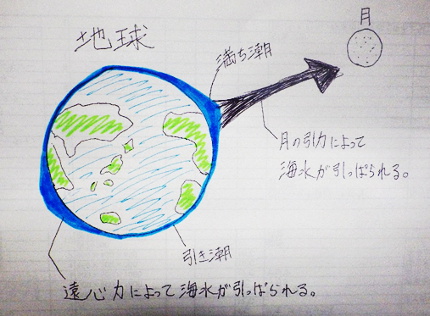 地球
月
満ち潮
月の引力によって
海水が引っぱられる。
引き潮
遠心力によって海水が引っぱられる。